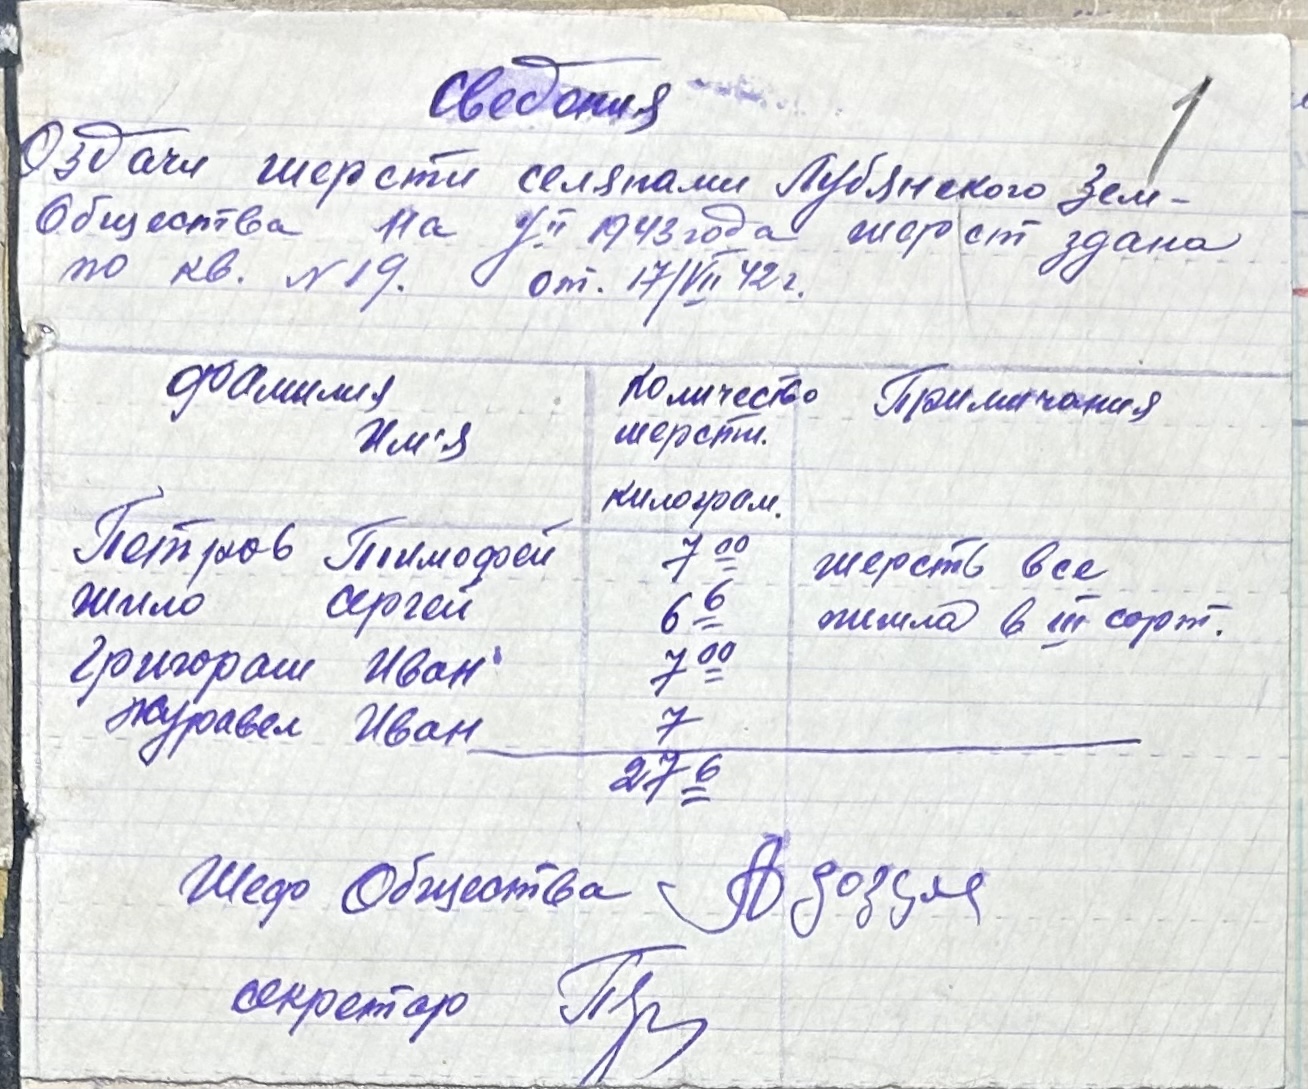 Сведения
1
О здачи шерсти селянами Лубянского Зем-
Общества на 1943 года шерст здана
по кв. №19. от. 17/VII 42 г.
Фамилия Количество Примичания
Им'я шерсти.
килограм.
Петров Тимофей 7 00 шерсть все
жило сергей 6 6 пишла в III сорт.
Григораш Иван 7 00
Журавел Иван 7
27 6
Шеф Общества
секретар